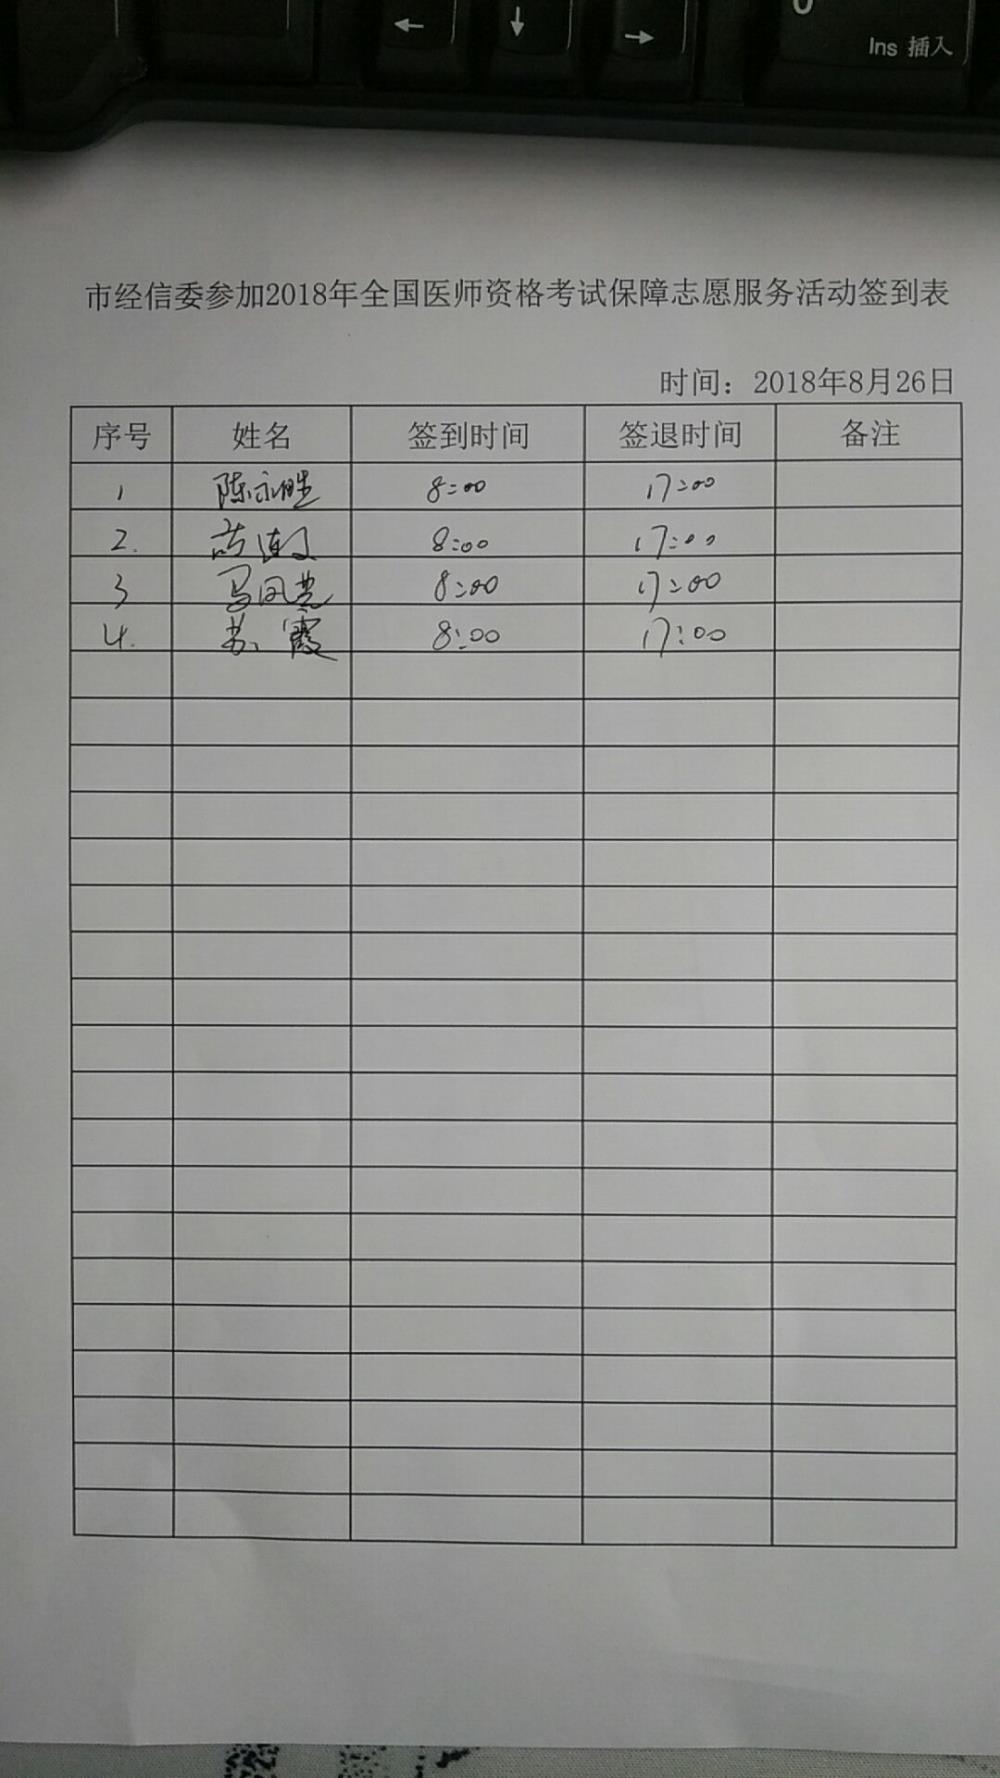 Ins 插入
市经信委参加2018年全国医师资格考试保障志愿服务活动签到表
时间：2018年8月26日
序号 姓名 签到时间 签退时间 备注
1 陈永胜 8:00 17:00
2. 8:00 17:00
3 马凤兰 8:00 17:00
4. 苏霞 8:00 17:00